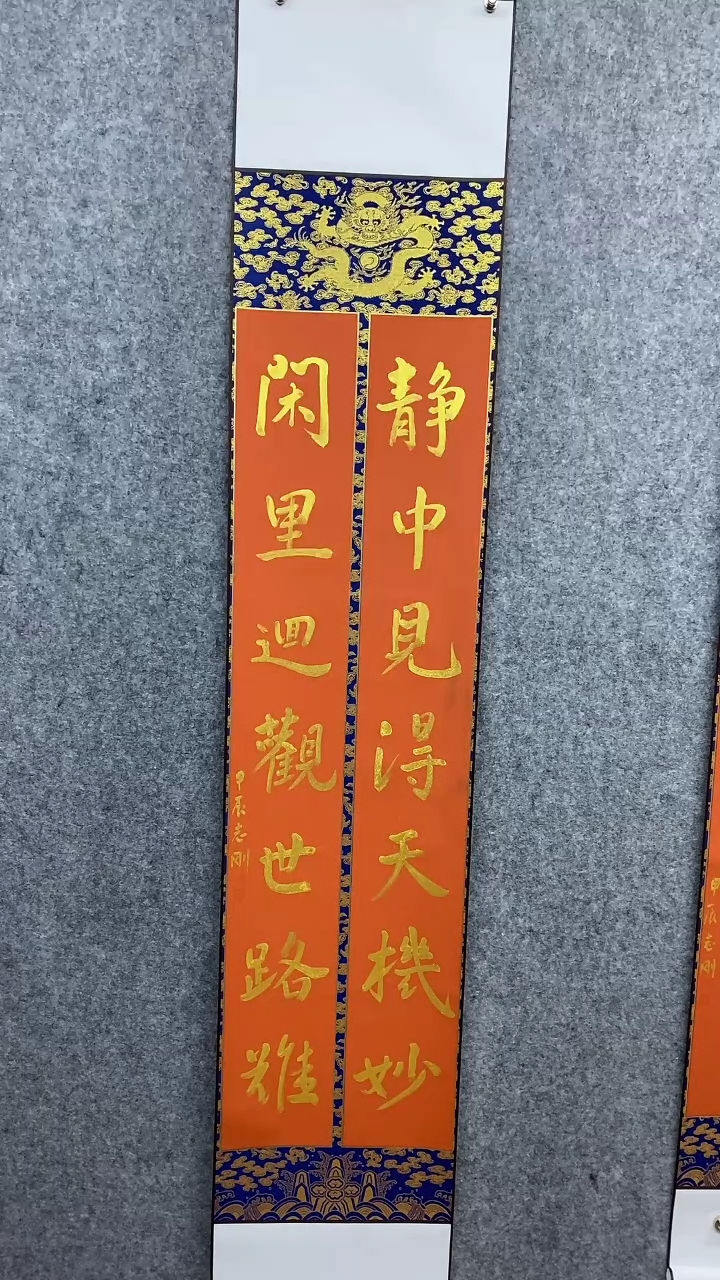 静中見得天機妙
閑里迴觀世路難
甲辰志刚
甲辰志刚